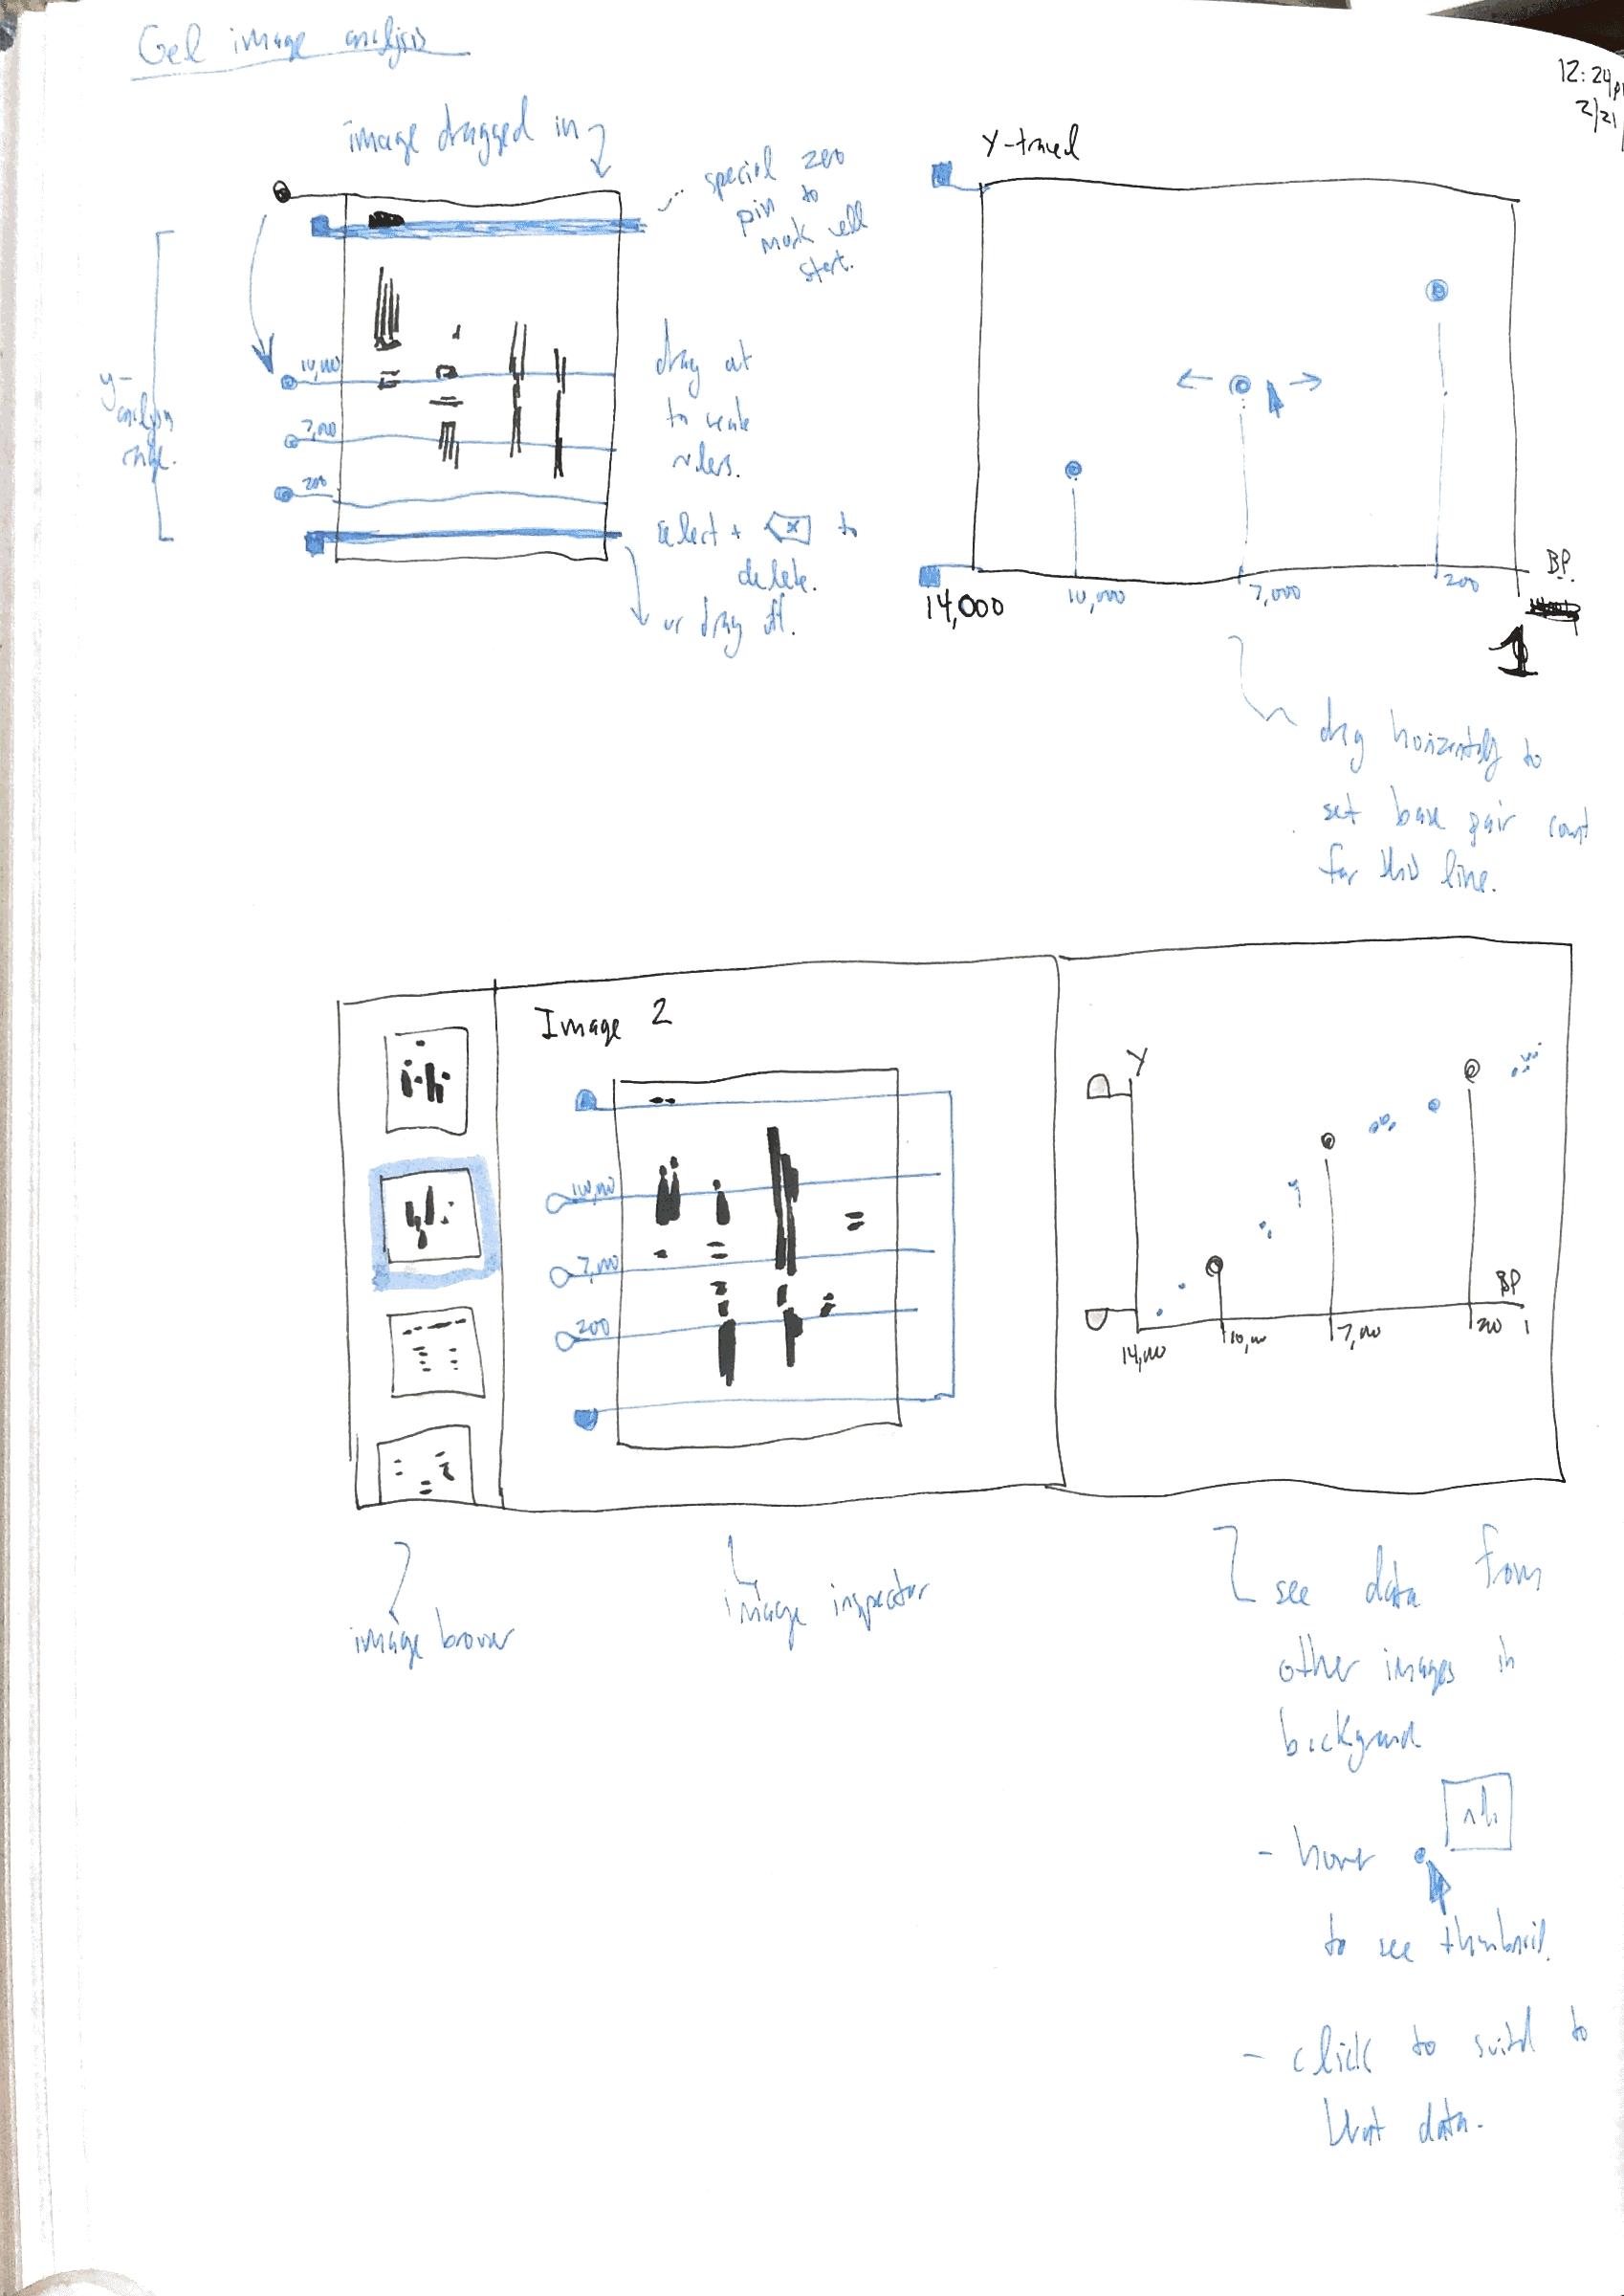 Gel image analysis
12:24p
2/21
image dragged in
special zero
pin to
mark well
start.
10,000
7,000
200
y-
analysis
range.
drag out
to create
rulers.
select + x to
delete.
or drag off.
Y-travel
B.P.
14,000
10,000
7,000
200
1
drag horizontally to
set base pair count
for this line.
Image 2
10,000
7,000
200
Y
BP
14,000
10,000
7,000
200
1
image browser
image inspector
see data from
other images in
background
- hover
to see thumbnail.
- click to switch to
that data.